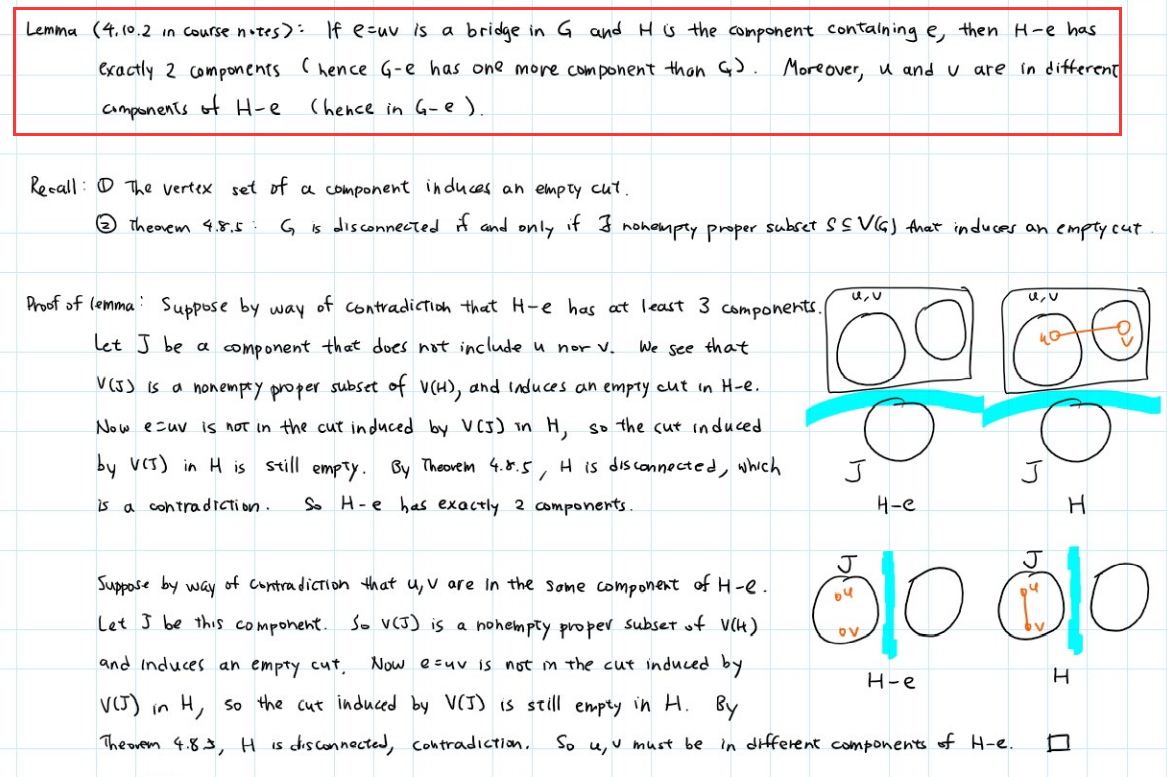 Lemma (4.10.2 in course notes): If e=uv is a bridge in G and H is the component containing e, then H-e has
exactly 2 components (hence G-e has one more component than G). Moreover, u and v are in different
components of H-e (hence in G-e).
Recall: ① The vertex set of a component induces an empty cut.
② Theorem 4.8.5: G is disconnected if and only if ∃ nonempty proper subset S⊆V(G) that induces an empty cut.
Proof of lemma: Suppose by way of contradiction that H-e has at least 3 components.
Let J be a component that does not include u nor v. We see that
V(J) is a nonempty proper subset of V(H), and induces an empty cut in H-e.
Now e=uv is not in the cut induced by V(J) in H, so the cut induced
by V(J) in H is still empty. By Theorem 4.8.5, H is disconnected, which
is a contradiction. So H-e has exactly 2 components.
u,v
J
H-e
u,v
u
v
J
H
Suppose by way of contradiction that u,v are in the same component of H-e.
Let J be this component. So V(J) is a nonempty proper subset of V(H)
and induces an empty cut. Now e=uv is not in the cut induced by
V(J) in H, so the cut induced by V(J) is still empty in H. By
Theorem 4.8.5, H is disconnected, contradiction. So u,v must be in different components of H-e. □
J
u
v
H-e
J
u
v
H